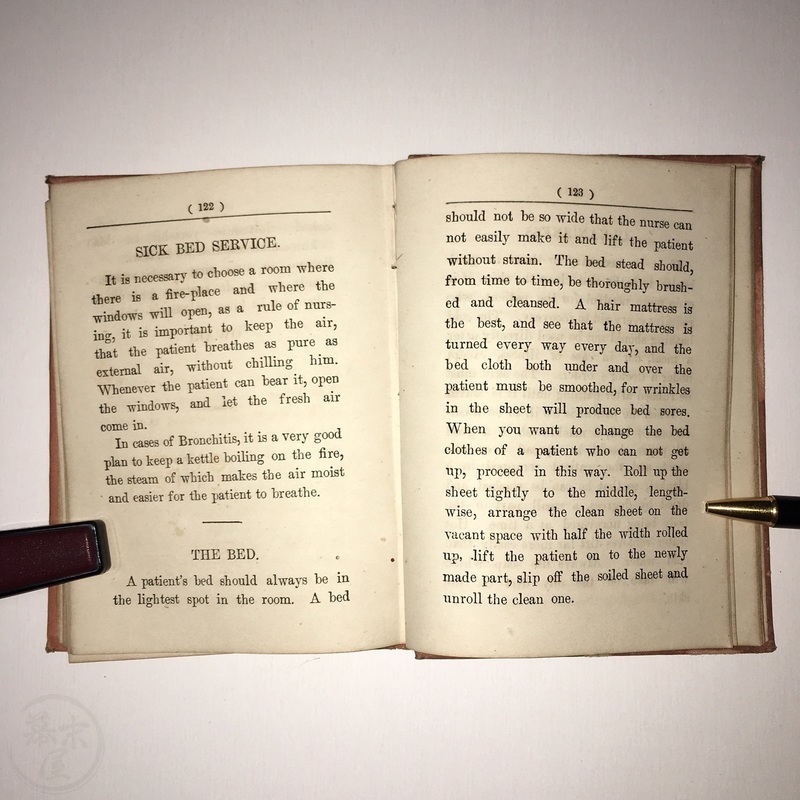 ( 122 )
SICK BED SERVICE.
It is necessary to choose a room where
there is a fire-place and where the
windows will open, as a rule of nurs-
ing, it is important to keep the air,
that the patient breathes as pure as
external air, without chilling him.
Whenever the patient can bear it, open
the windows, and let the fresh air
come in.
In cases of Bronchitis, it is a very good
plan to keep a kettle boiling on the fire,
the steam of which makes the air moist
and easier for the patient to breathe.
THE BED.
A patient's bed should always be in
the lightest spot in the room. A bed
( 123 )
should not be so wide that the nurse can
not easily make it and lift the patient
without strain. The bed stead should,
from time to time, be thoroughly brush-
ed and cleansed. A hair mattress is
the best, and see that the mattress is
turned every way every day, and the
bed cloth both under and over the
patient must be smoothed, for wrinkles
in the sheet will produce bed sores.
When you want to change the bed
clothes of a patient who can not get
up, proceed in this way. Roll up the
sheet tightly to the middle, length-
wise, arrange the clean sheet on the
vacant space with half the width rolled
up, lift the patient on to the newly
made part, slip off the soiled sheet and
unroll the clean one.
幕末屋